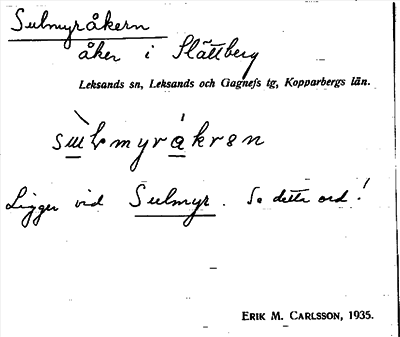 Sulmyråkern
åker i Slättberg
Leksands sn, Leksands och Gagnefs tg, Kopparbergs län.
Ligger vid Sulmyr. Se detta ord!
ERIK M. CARLSSON, 1935.